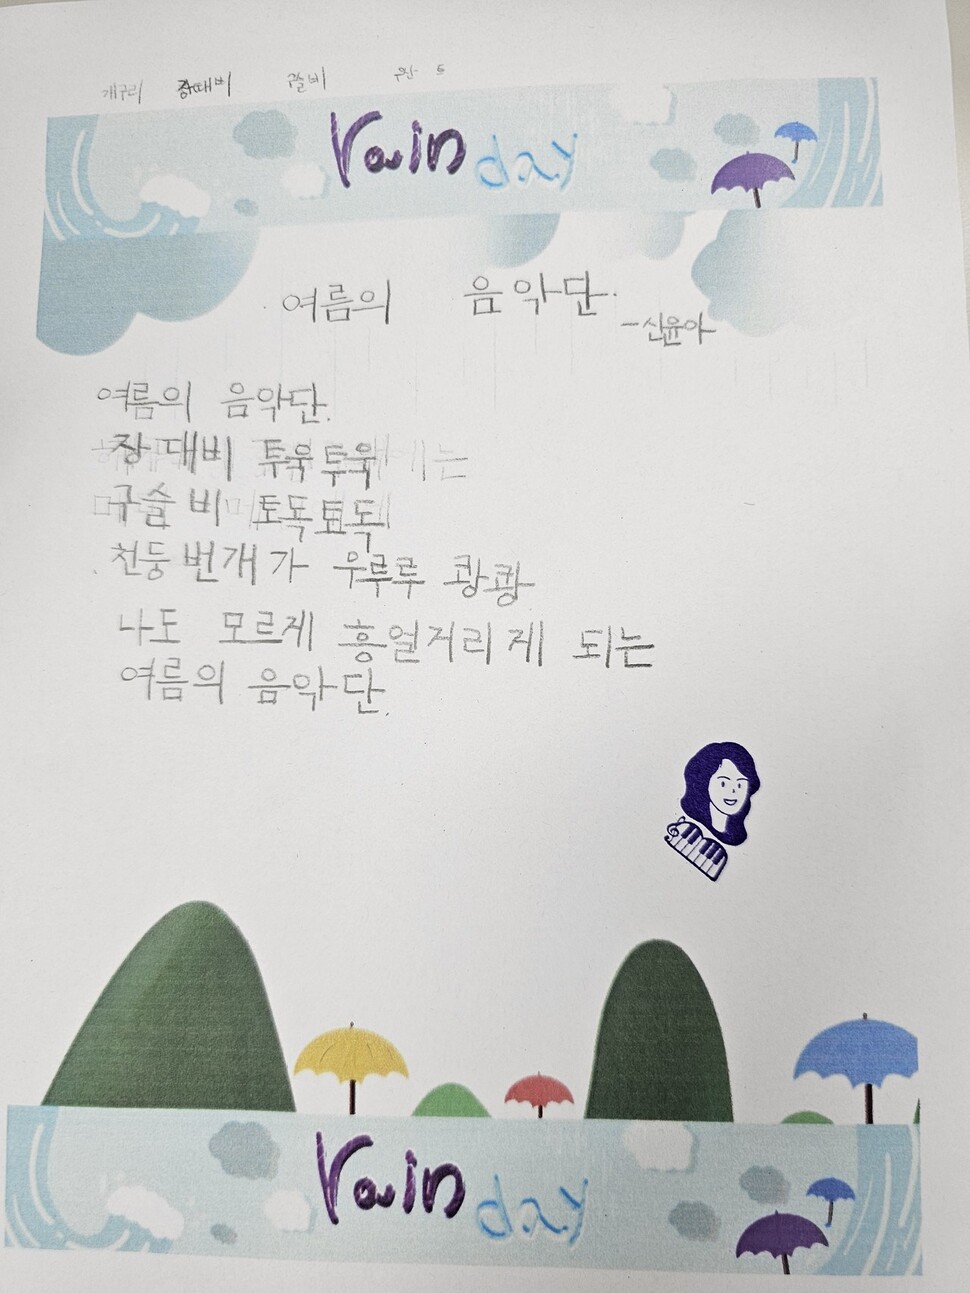 개구리 장대비 구슬비 우산
rain day
여름의 음악단.
-신윤아
여름의 음악단.
장대비 투욱투욱
구슬비 토독토독
천둥번개가 우루루 쾅쾅
나도 모르게 흥얼거리게 되는
여름의 음악단.
rain day